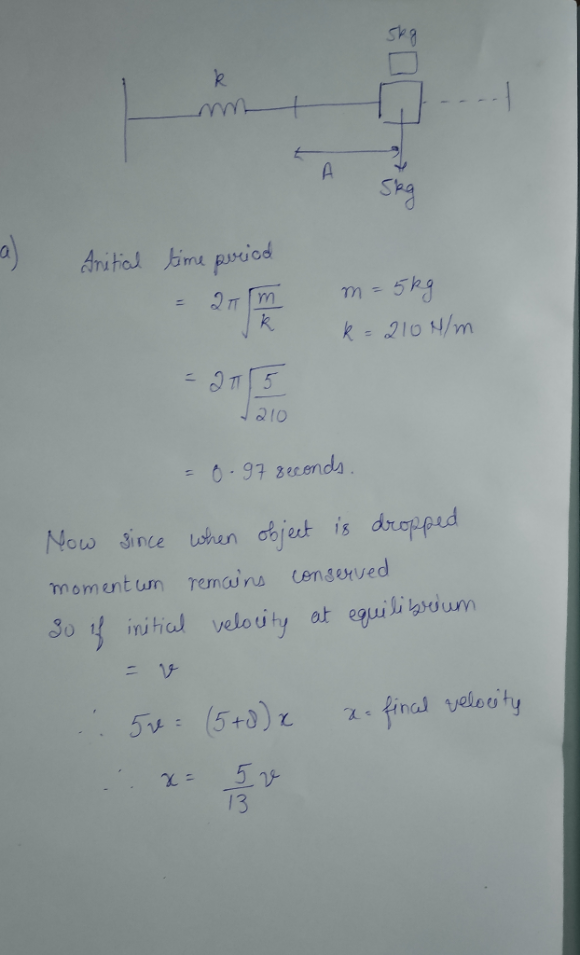 5kg
k
A
5kg
a) Initial time period
= 2π√m/k m = 5kg
k = 210 N/m
= 2π√5/210
= 0.97 seconds.
Now since when object is dropped
momentum remains conserved
So if initial velocity at equilibrium
= v
∴ 5v = (5+8)x x = final velocity
∴ x = 5/13 v